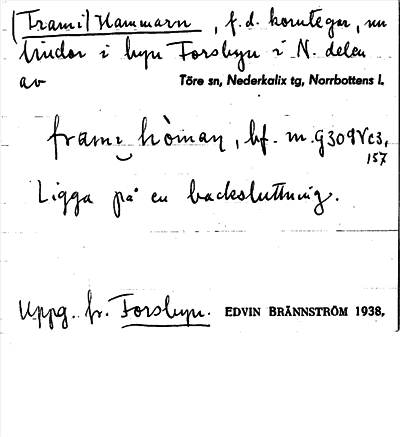 (Frami) Hammarn, f.d. korntegar, nu
lindor i byn Forsbyn i N. delen
av Töre sn, Nederkalix tg, Norrbottens l.
frami hòman, bf. m.
157
Ligga på en backsluttning.
Uppg. fr. Forsbyn. EDVIN BRÄNNSTRÖM 1938.